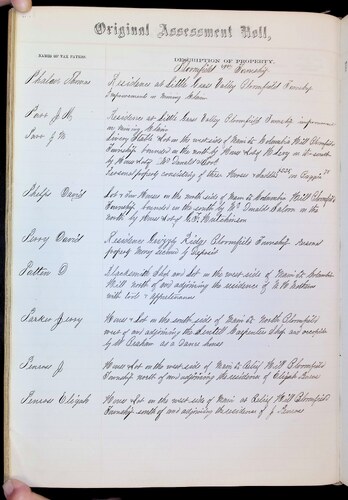 Original Assessment Roll,
NAMES OF TAX PAYERS.
DESCRIPTION OF PROPERTY.
Bloomfield Township
Phalan Thomas
Residence at Little Grass Valley Bloomfield Township
Improvements on Mining Claim
Parr J R
Residence at Little Grass Valley Bloomfield Township improvement
on mining Claim
Parr J M
Livery Stable & Lot on the west side of Main St Columbia Hill Bloomfield
Township bounded on the north by House & Lot of on South
by House & Lot of McDonald
Personal property consisting of three Horses & Saddles
Phelps David
Lot & two Houses on the north side of Main St Columbia Hill Bloomfield
Township bounded on the south by McDonalds Saloon on the
north by House & Lot of Hutchinson
Perry David
Residence Ridge Bloomfield Township Personal
property Money secured by
Patten D
Blacksmith Shop and Lot on the west side of Main St Columbia
Hill north of and adjoining the residence of
with Tools & appurtenances
Parker Jerry
House & Lot on the south side of Main St North Bloomfield
west of and adjoining the Carpenter Shop and occupied
by as a dance house
Penrose J
House & Lot on the west side of Main St Relief Hill Bloomfield
Township north of and adjoining the residence of Elijah Penrose
Penrose Elijah
House & Lot on the west side of Main St Relief Hill Bloomfield
Township south of and adjoining the residence of J Penrose